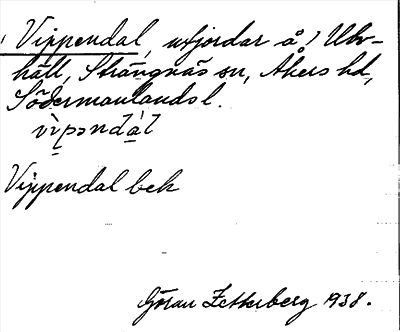 Vippendal, utfjordar å) Ulv-
häll, Strängnäs sn, Åkers hd,
Södermanlands l.
Vippendal bek
Göran Zetterberg 1938.